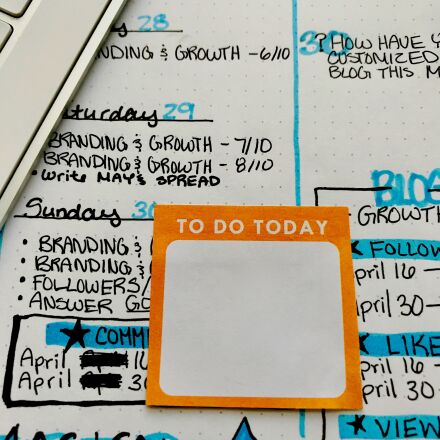 28
NDING & GROWTH - 6/10
Saturday 29
BRANDING & GROWTH - 7/10
BRANDING & GROWTH - 8/10
• WRITE MAY'S SPREAD
Sunday 30
• BRANDING &
• BRANDING &
• FOLLOWERS/
• ANSWER
COMM
April 16
April 30
TO DO TODAY
? HOW HAVE
CUSTOMIZED
BLOG THIS M
BLOG
- GROWTH
FOLLOW
April 16 -
April 30 -
LIKE
April 16 -
April 30 -
VIEW